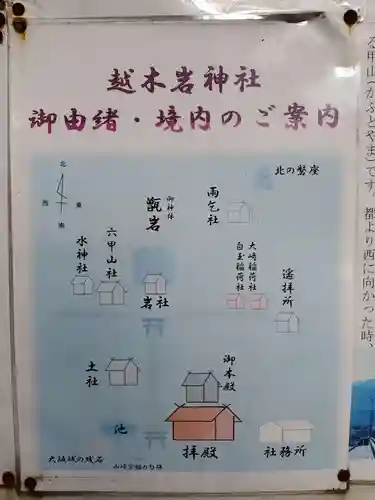 越木岩神社
御由緒・境内のご案内
北
西
東
南
北の磐座
雨乞社
御神体
甑岩
六甲山社
水神社
岩社
大崎稲荷社
白玉稲荷社
遥拝所
土社
御本殿
池
拝殿
社務所
大坂城の残石
る甲山(かぶとやま)です。都より西に向かった時、